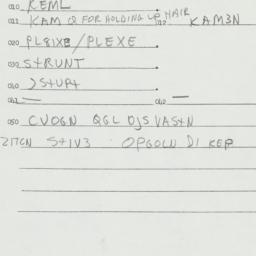 010 KEML
011 KAM Q FOR HOLDING UP HAIR 012 KAM3N
020 PL8IXE/PLEXE
030 S+RUNT
040
041 — 042 —
050 CVOGN QGL DJS VAS+N
217CN S+1V3 OPGOLN DI KEP